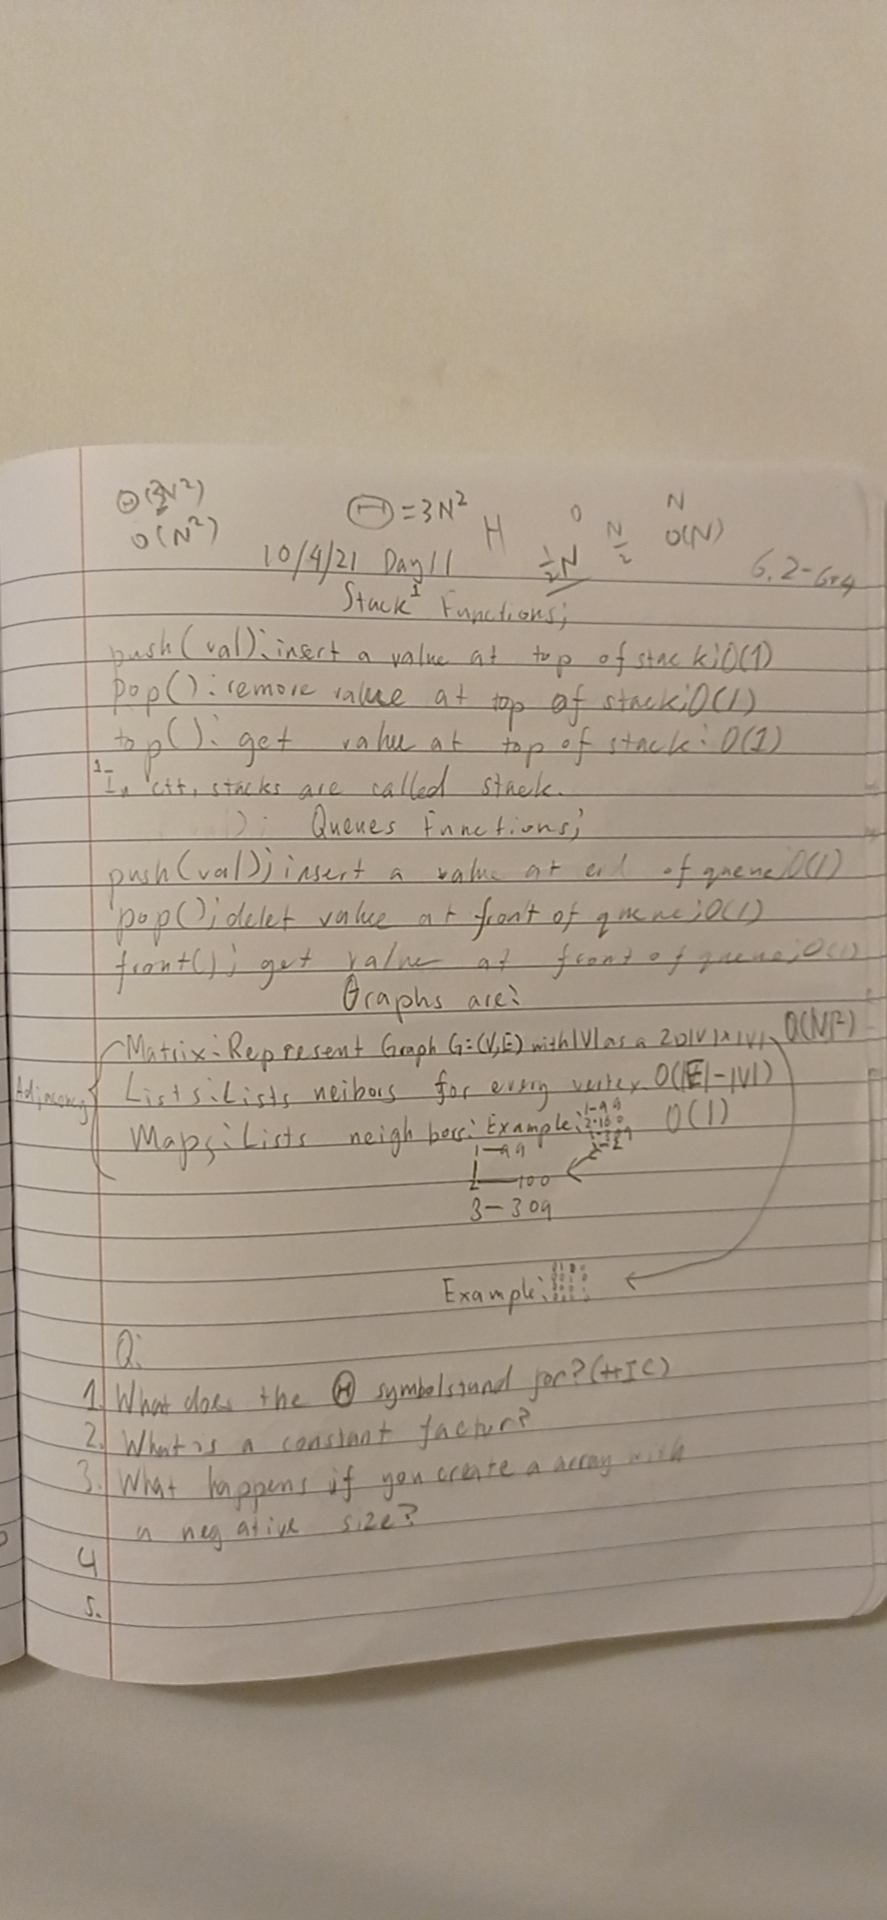 Θ(3N²)
O(N²)
Θ=3N²
H
O
½N
N/2
N
O(N)
10/4/21 Day 11
Stack¹ Functions;
push(val): insert a value at top of stack: O(1)
pop(): remove value at top of stack: O(1)
top(): get value at top of stack: O(1)
1- In C++, stacks are called stack.
Queues Functions;
push(val); insert a value at end of queue: O(1)
pop(); delet value at front of queue: O(1)
front(); get value at front of queue: O(1)
Graphs are:
Adjacency
Matrix: Represent Graph G=(V,E) with |V| as a 2D |V|x|V|
Lists: Lists neibors for every vertex O(|E|-|V|)
Maps: Lists neighbors: Example: O(1)
1-99
2-100
3-309
Example:
Q:
1. What does the Θ symbol stand for?
2. What is a constant factor?
3. What happens if you create a array with
a negative size?
4
5.